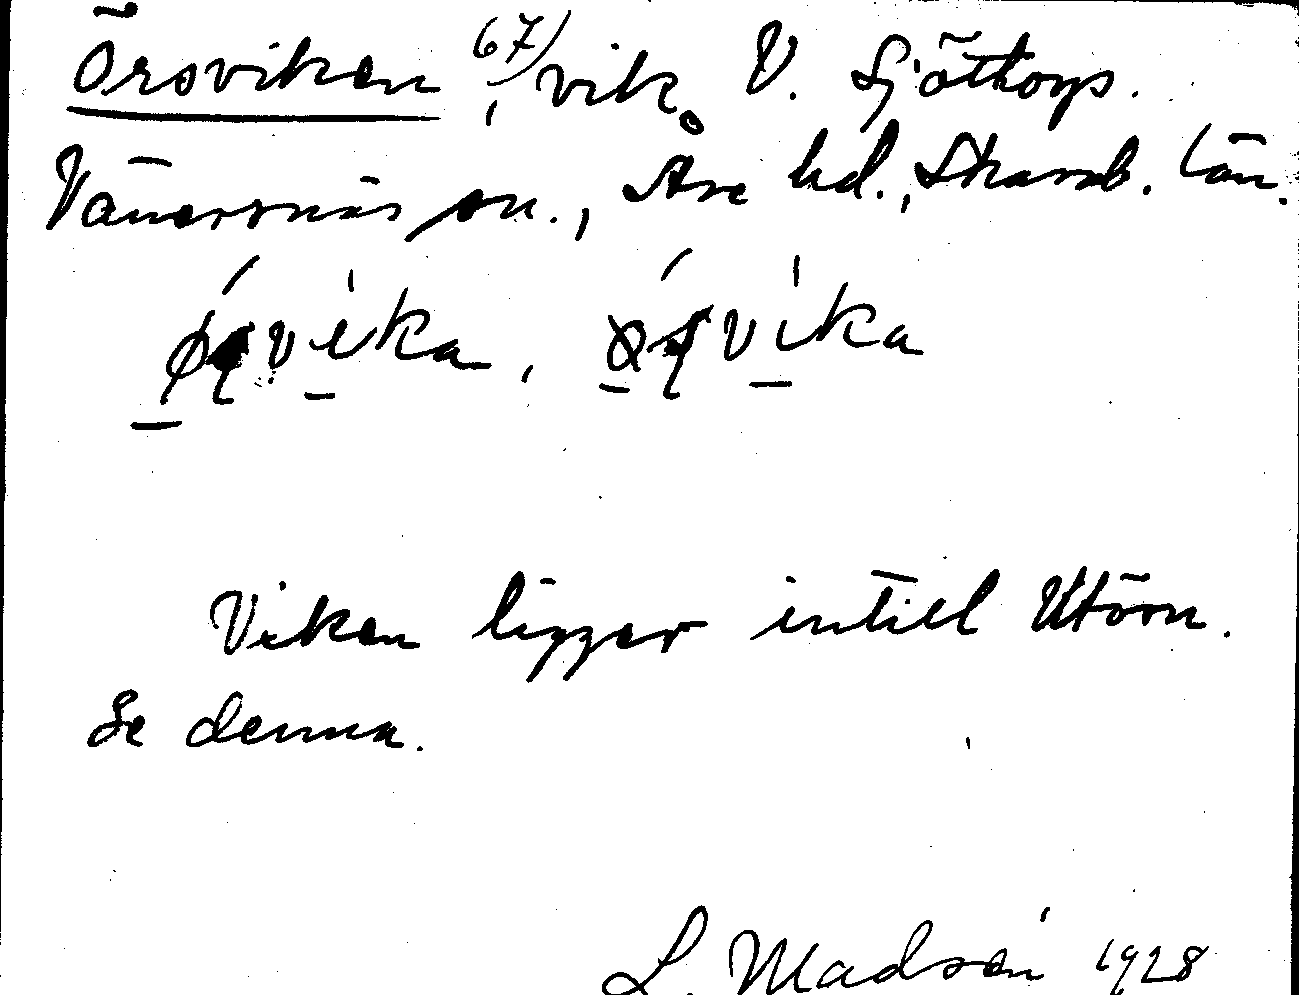 Örsviken 67), vik. V. Sjötorps.
Vänersnäs sn., Åse hd., Skarab. län.
Viken ligger intill Utörn.
Se denna.
L. Madsén 1928